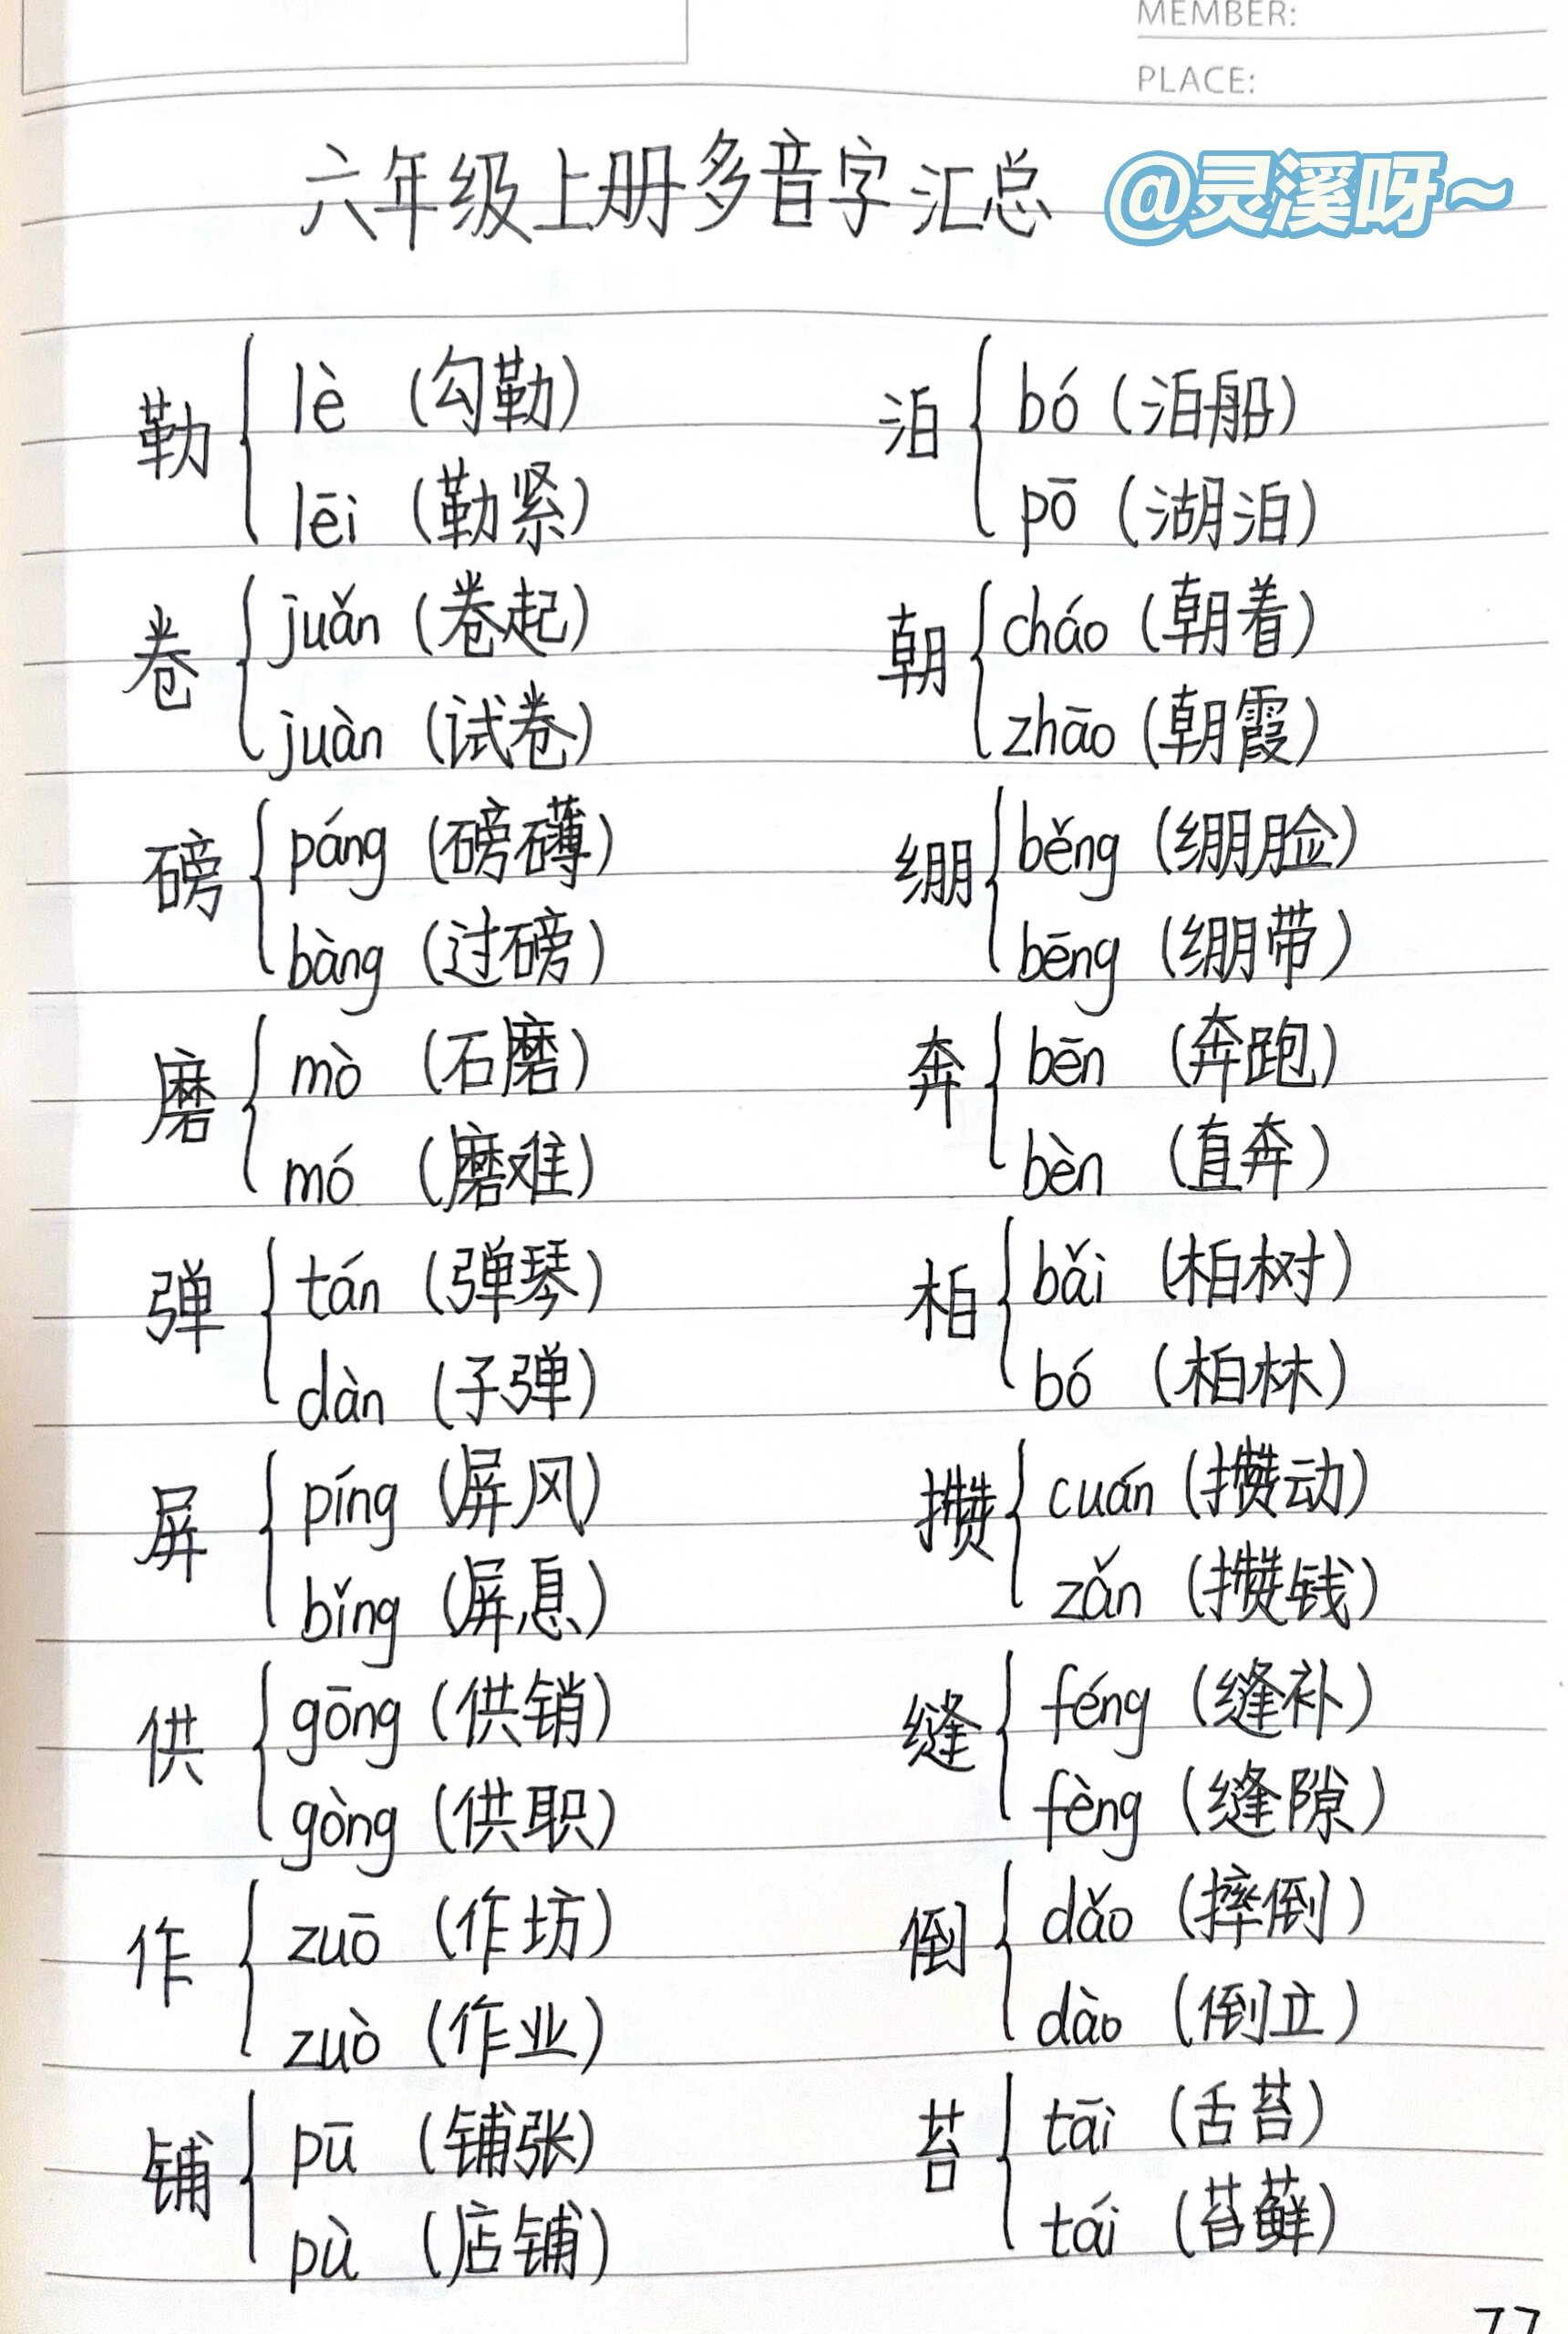 MEMBER:
PLACE:
六年级上册多音字汇总 @灵溪呀~
勒 { lè (勾勒)
lēi (勒紧)
泊 { bó (泊船)
pō (湖泊)
卷 { juǎn (卷起)
juàn (试卷)
朝 { cháo (朝着)
zhāo (朝霞)
磅 { páng (磅礴)
bàng (过磅)
绷 { běng (绷脸)
bēng (绷带)
磨 { mò (石磨)
mó (磨难)
奔 { bēn (奔跑)
bèn (直奔)
弹 { tán (弹琴)
dàn (子弹)
柏 { bǎi (柏树)
bó (柏林)
屏 { píng (屏风)
bǐng (屏息)
攒 { cuán (攒动)
zǎn (攒钱)
供 { gōng (供销)
gòng (供职)
缝 { féng (缝补)
fèng (缝隙)
作 { zuō (作坊)
zuò (作业)
倒 { dǎo (摔倒)
dào (倒立)
铺 { pū (铺张)
pù (店铺)
苔 { tāi (舌苔)
tái (苔藓)
77